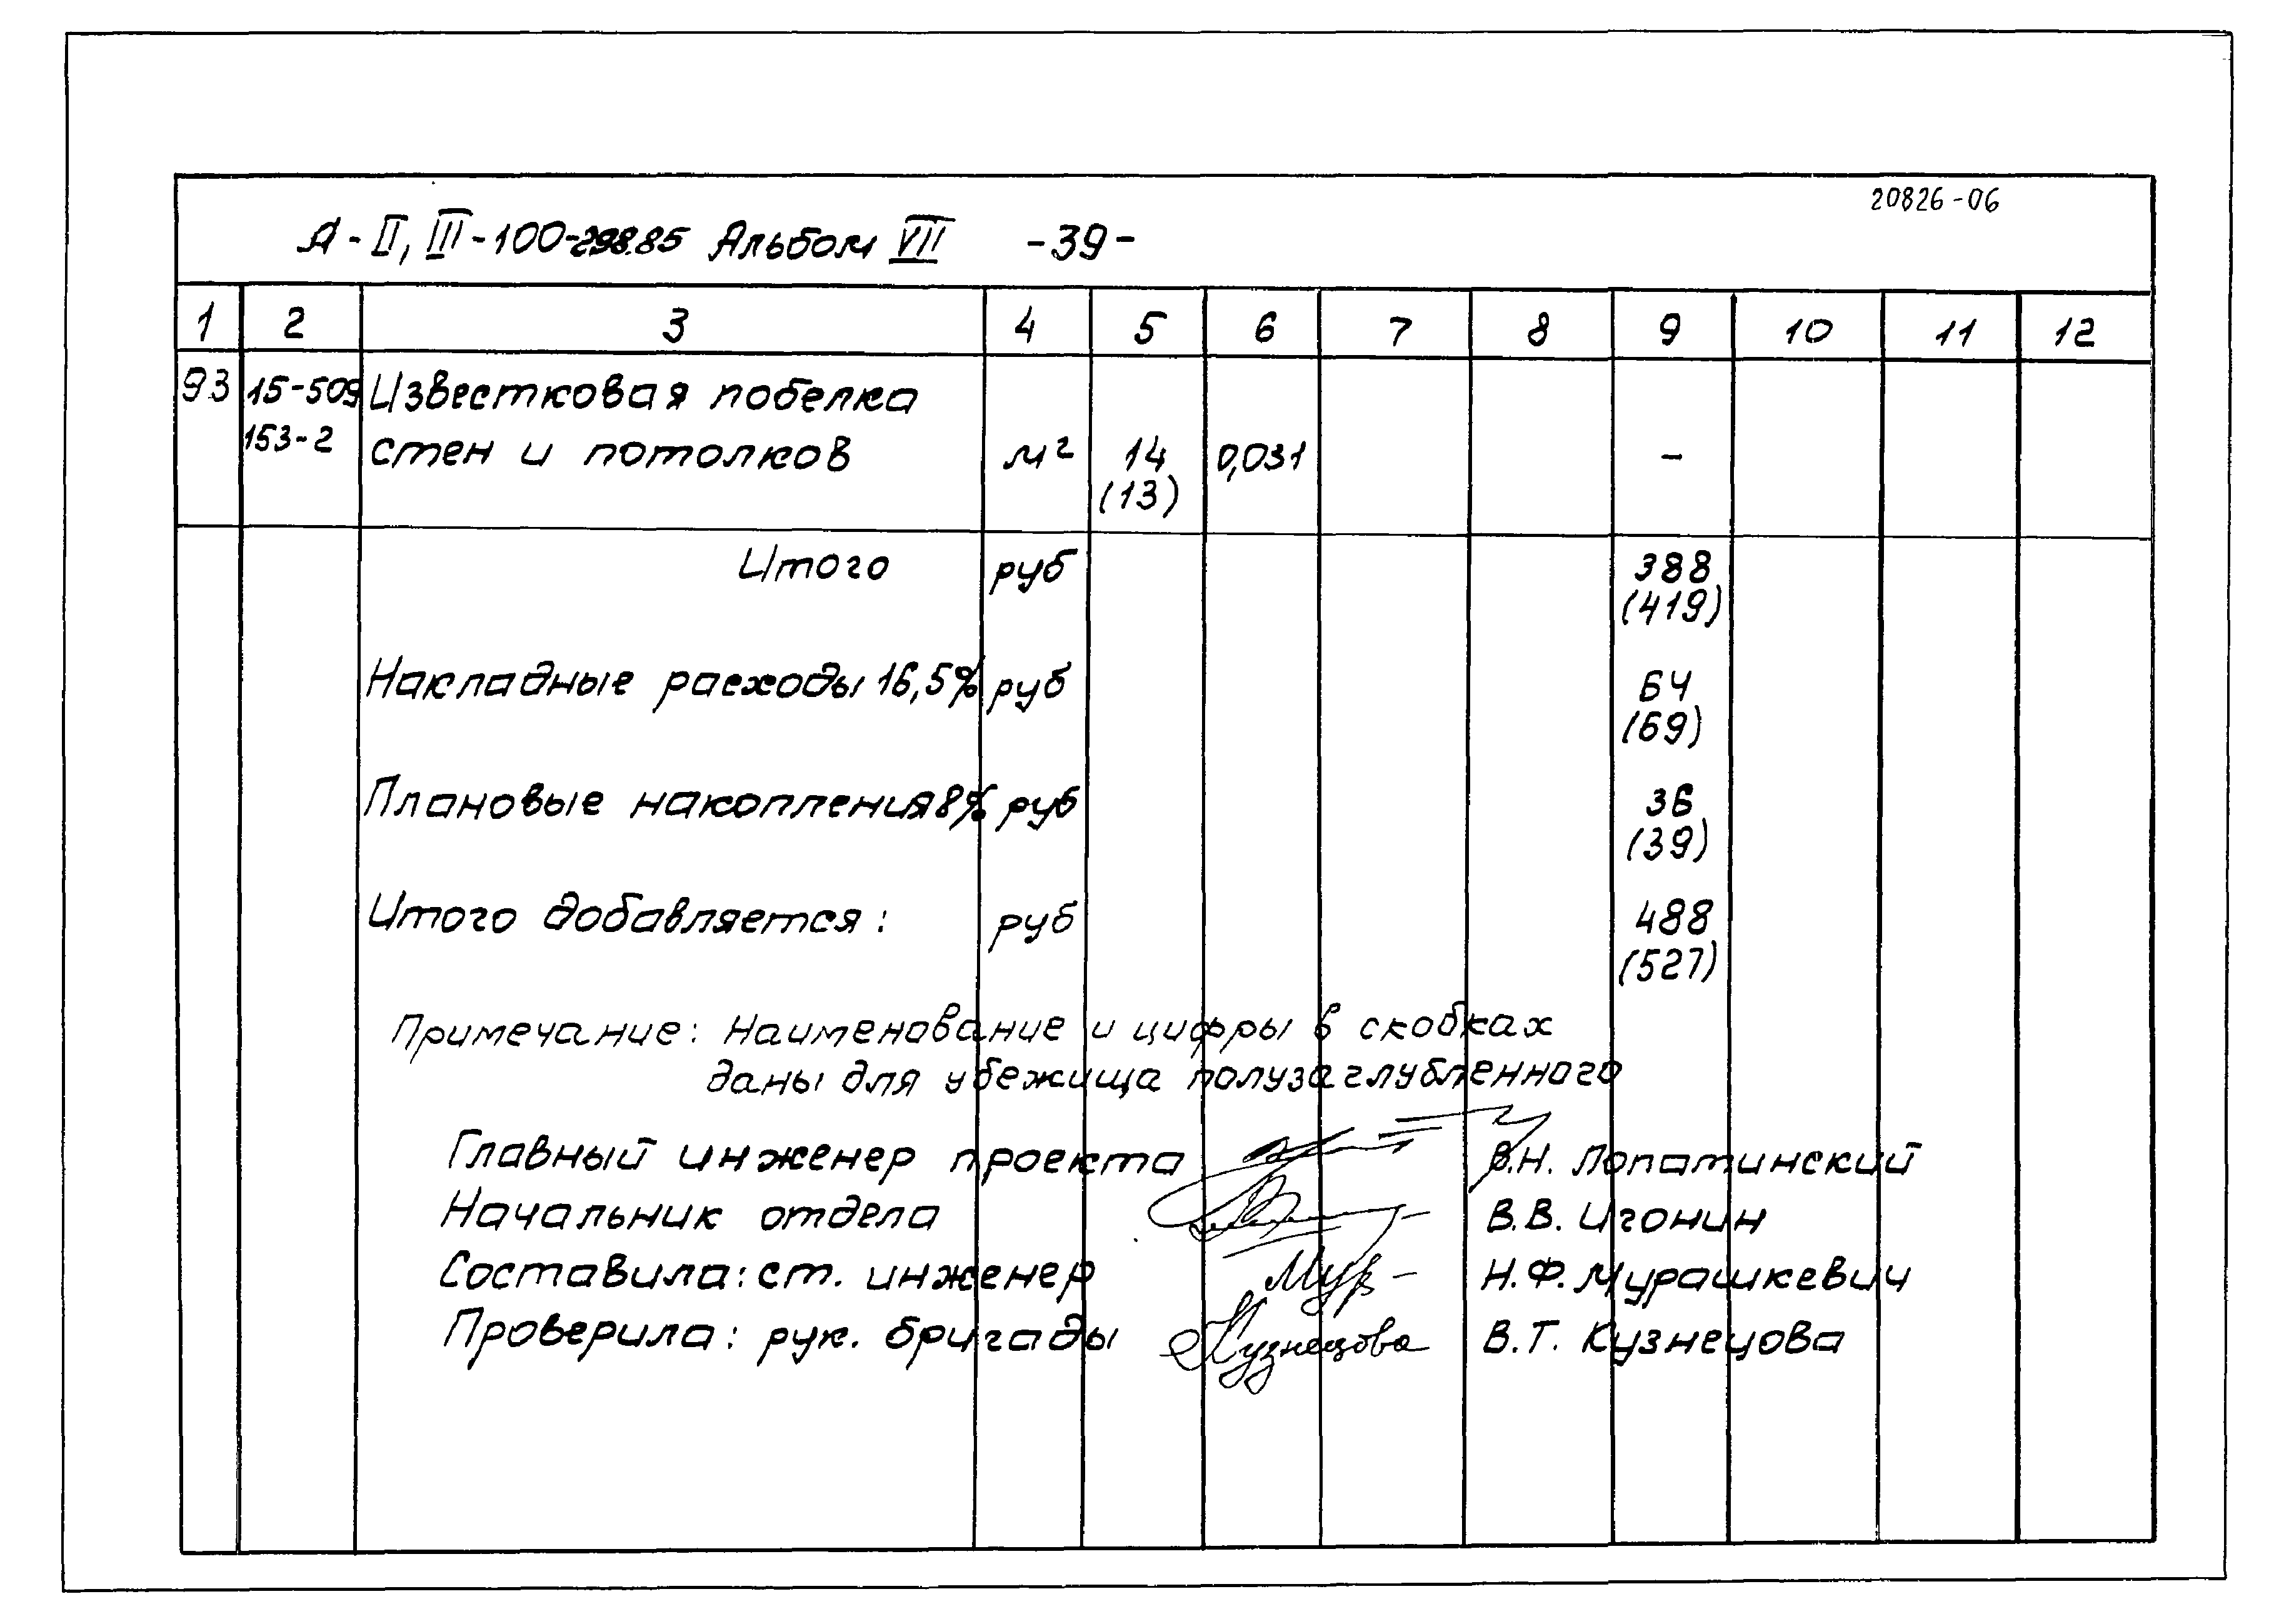 20826-06
А-II, III-100-298.85 Альбом VII -39-
1 2 3 4 5 6 7 8 9 10 11 12
93 15-509 Известковая побелка
153-2 стен и потолков м² 14 0,031 -
(13)
Итого руб 388
(419)
Накладные расходы 16,5% руб 64
(69)
Плановые накопления 8% руб 36
(39)
Итого добавляется: руб 488
(527)
Примечание: Наименование и цифры в скобках
даны для убежища полузаглубленного
Главный инженер проекта В.Н. Лопатинский
Начальник отдела В.В. Игонин
Составила: ст. инженер Мур- Н.Ф. Мурашкевич
Проверила: рук. бригады Кузнецова В.Т. Кузнецова